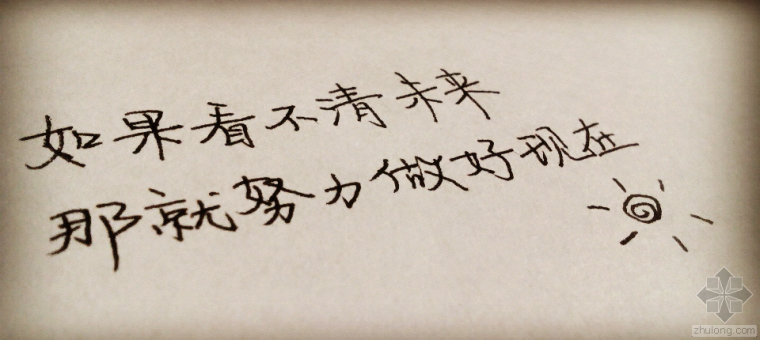 如果看不清未来
那就努力做好现在
zhulong.com